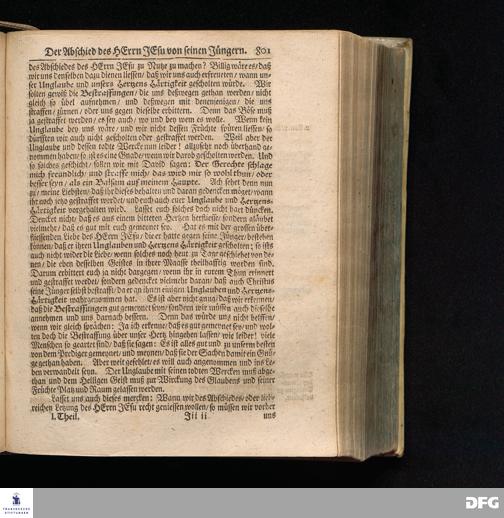 Der Abschied des HErrn JEsu von seinen Jüngern. 801
des Abschiedes des HErrn JEsu zu Nutze zu machen? Billig wäre es/daß
wir uns denselben dazu dienen liessen/daß wir uns auch erfreueten/wann un-
ser Unglaube und unsers Hertzens Härtigkeit gescholten würde. Wir
solten gewiß die Bestraffungen/die uns deßwegen gethan werden/nicht
gleich so übel aufnehmen/und deßwegen mit denenjenigen/die uns
straffen/zürnen/oder uns gegen dieselbe erbittern. Denn das Böse muß
ja gestraffet werden/es sey auch/wo und bey wem es wolle. Wenn kein
Unglaube bey uns wäre/und wir nicht dessen Früchte spüren liessen/so
dürfften wir auch nicht gescholten oder gestraffet werden. Weil aber der
Unglaube und dessen todte Wercke nun leider! allzusehr noch überhand ge-
nommen haben/so ist es eine Gnade/wenn wir darob gescholten werden. Und
so solches geschicht/sollen wir mit David sagen: Der Gerechte schlage
mich freundlich/und straffe mich/das wird mir so wohl thun/oder
besser seyn/als ein Balsam auf meinem Haupte. Ach sehet denn nun
zu/meine Liebsten/daß ihr dieses behaltet und daran gedencken möget/wann
ihr noch jetzo gestraffet werdet/und euch auch euer Unglaube und Hertzens-
Härtigkeit vorgehalten wird. Lasset euch solches doch nicht hart düncken.
Dencket nicht/daß es aus einem bitteren Hertzen herfliesse/sondern gläubet
vielmehr/daß es gut mit euch gemeinet sey. Hat es mit der grossen über-
fliessenden Liebe des HErrn JEsu/die er hatte gegen seine Jünger/bestehen
können/daß er ihren Unglauben und Hertzens Härtigkeit gescholten; so ists
auch nicht wider die Liebe/wenn solches noch heut zu Tage geschiehet von de-
nen/die eben desselben Geistes in ihrer Maasse theilhafftig worden sind.
Darum erbittert euch ja nicht dargegen/wenn ihr in eurem Thun erinnert
und gestraffet werdet/sondern gedencket vielmehr daran/daß auch Christus
seine Jünger selbst bestrafft/da er an ihnen einigen Unglauben und Hertzens-
Härtigkeit wahrgenommen hat. Es ist aber nicht genug/daß wir erkennen/
daß die Bestraffungen gut gemeynet seyn/sondern wir müssen auch dieselbe
annehmen und uns darnach bessern. Denn das würde uns nicht helffen/
wenn wir gleich sprächen: Ja ich erkenne/daß es gut gemeynet sey/und wol-
ten doch die Bestraffung über unser Hertz hingehen lassen/wie leider! viele
Menschen so geartet sind/daß sie sagen: Es ist alles gut und zu unserm besten
von dem Prediger gemeynet/und meynen/daß sie der Sachen damit ein Gnü-
ge gethan haben. Aber weit gefehlet/es will auch angenommen und ins Le-
ben verwandelt seyn. Der Unglaube mit seinen todten Wercken muß abge-
than und dem Heiligen Geist muß zur Würckung des Glaubens und seiner
Früchte Platz und Raum gelassen werden.
Lasset uns auch dieses mercken: Wann wir des Abschiedes/oder lieb-
reichen Letzung des HErrn JEsu recht geniessen wollen/so müssen wir vorher
I. Theil. Jii ii uns
FRANCKESCHE
STIFTUNGEN
DFG